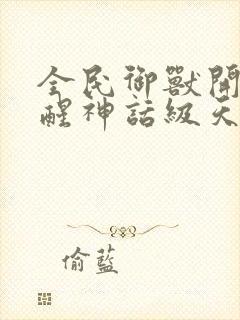 全民御獸開
醒神話級天
偷藍